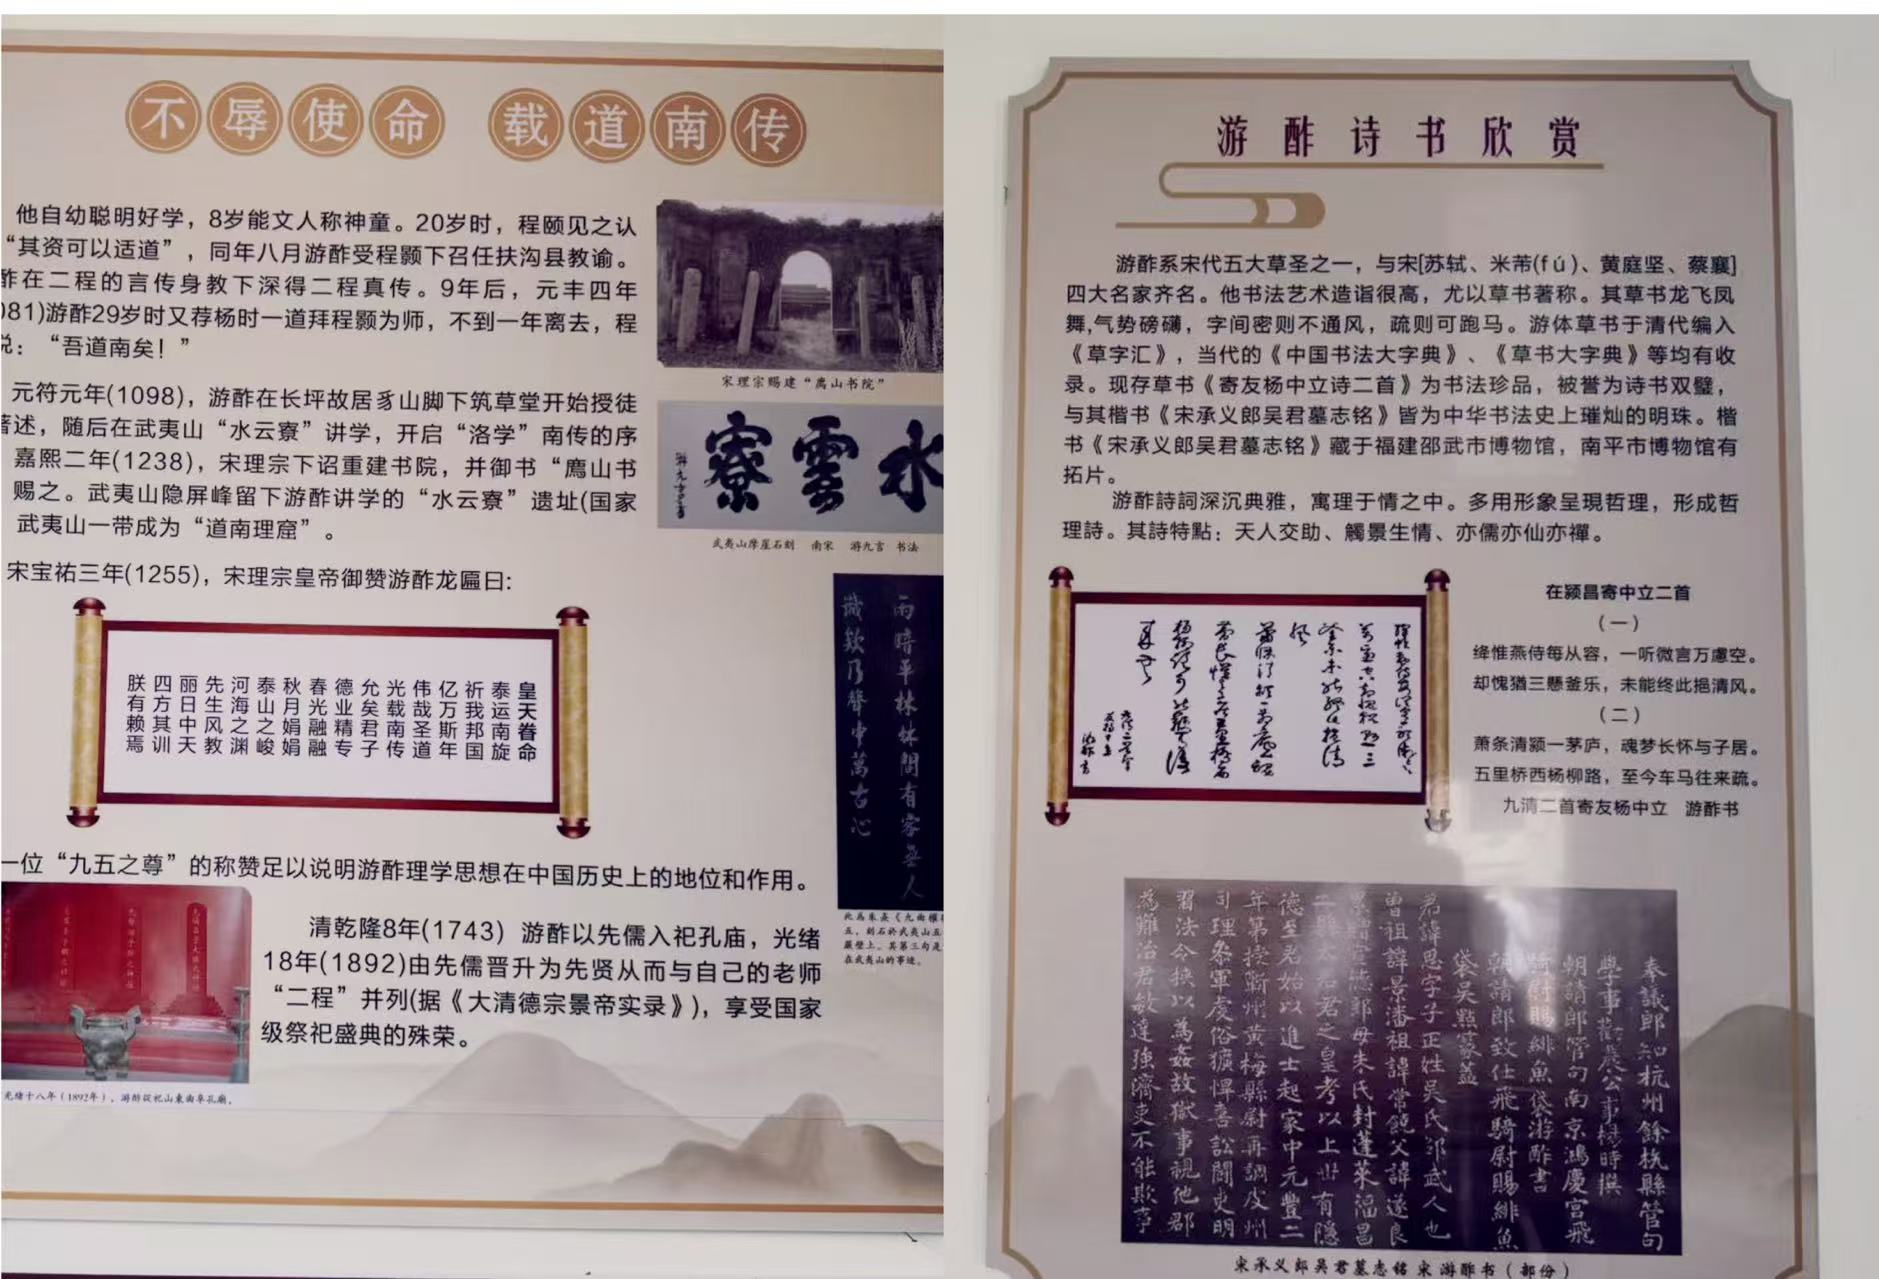 不辱使命 载道南传
他自幼聪明好学，8岁能文人称神童。20岁时，程颐见之认
“其资可以适道”，同年八月游酢受程颢下召任扶沟县教谕。
酢在二程的言传身教下深得二程真传。9年后，元丰四年
081)游酢29岁时又荐杨时一道拜程颢为师，不到一年离去，程
说：“吾道南矣！”
元符元年(1098)，游酢在长坪故居豸山脚下筑草堂开始授徒
著述，随后在武夷山“水云寮”讲学，开启“洛学”南传的序
嘉熙二年(1238)，宋理宗下诏重建书院，并御书“廌山书
赐之。武夷山隐屏峰留下游酢讲学的“水云寮”遗址(国家
武夷山一带成为“道南理窟”。
宋宝祐三年(1255)，宋理宗皇帝御赞游酢龙匾曰：
皇天眷命
泰运南旋
祈我邦国
亿万斯年
伟哉圣道
光载南传
允矣君子
德业精专
春光融融
秋月娟娟
泰山之峻
河海之渊
先生风教
丽日中天
四方其训
朕有赖焉
一位“九五之尊”的称赞足以说明游酢理学思想在中国历史上的地位和作用。
清乾隆8年(1743) 游酢以先儒入祀孔庙，光绪
18年(1892)由先儒晋升为先贤从而与自己的老师
“二程”并列(据《大清德宗景帝实录》)，享受国家
级祭祀盛典的殊荣。
光绪十八年（1892年），游酢从祀山东曲阜孔廟。
宋理宗赐建“廌山书院”
水雲寮
游九言書
武夷山摩崖石刻 南宋 游九言 书法
雨暗平林林間有客無人
識欸乃聲中萬古心
此為朱熹《九曲櫂
五，刻石於武夷山五
巖壁上。其第三句是
在武夷山的事迹。
游酢诗书欣赏
游酢系宋代五大草圣之一，与宋[苏轼、米芾(fú)、黄庭坚、蔡襄]
四大名家齐名。他书法艺术造诣很高，尤以草书著称。其草书龙飞凤
舞,气势磅礴，字间密则不通风，疏则可跑马。游体草书于清代编入
《草字汇》，当代的《中国书法大字典》、《草书大字典》等均有收
录。现存草书《寄友杨中立诗二首》为书法珍品，被誉为诗书双璧，
与其楷书《宋承义郎吴君墓志铭》皆为中华书法史上璀灿的明珠。楷
书《宋承义郎吴君墓志铭》藏于福建邵武市博物馆，南平市博物馆有
拓片。
游酢詩詞深沉典雅，寓理于情之中。多用形象呈現哲理，形成哲
理詩。其詩特點：天人交助、觸景生情、亦儒亦仙亦禪。
在颍昌寄中立二首
（一）
绛惟燕侍每从容，一听微言万慮空。
却愧猶三懸釜乐，未能终此挹清风。
（二）
萧条清颍一茅庐，魂梦长怀与子居。
五里桥西杨柳路，至今车马往来疏。
九清二首寄友杨中立 游酢书
奉議郎知杭州餘杭縣管句
學事勸農公事楊時撰
朝請郎管句南京鴻慶宮飛
騎尉賜緋魚袋游酢書
朝請郎致仕飛騎尉賜緋魚
袋吴點篆蓋
君諱思字子正姓吴氏邵武人也
曾祖諱景潘祖諱常饒父諱遂良
累贈宣德郎母朱氏封蓬萊縣昌
君之皇考以上世有隱
德至君始以進士起家中元豐二
年第授蘄州黄梅縣尉再調虔州
司理叅軍虔俗獷悍喜訟鬬吏明
習法令挾以為姦故獄事視他郡
為難治君敏達強濟吏不能欺事
宋承义郎吴君墓志铭 宋 游酢书（部份）